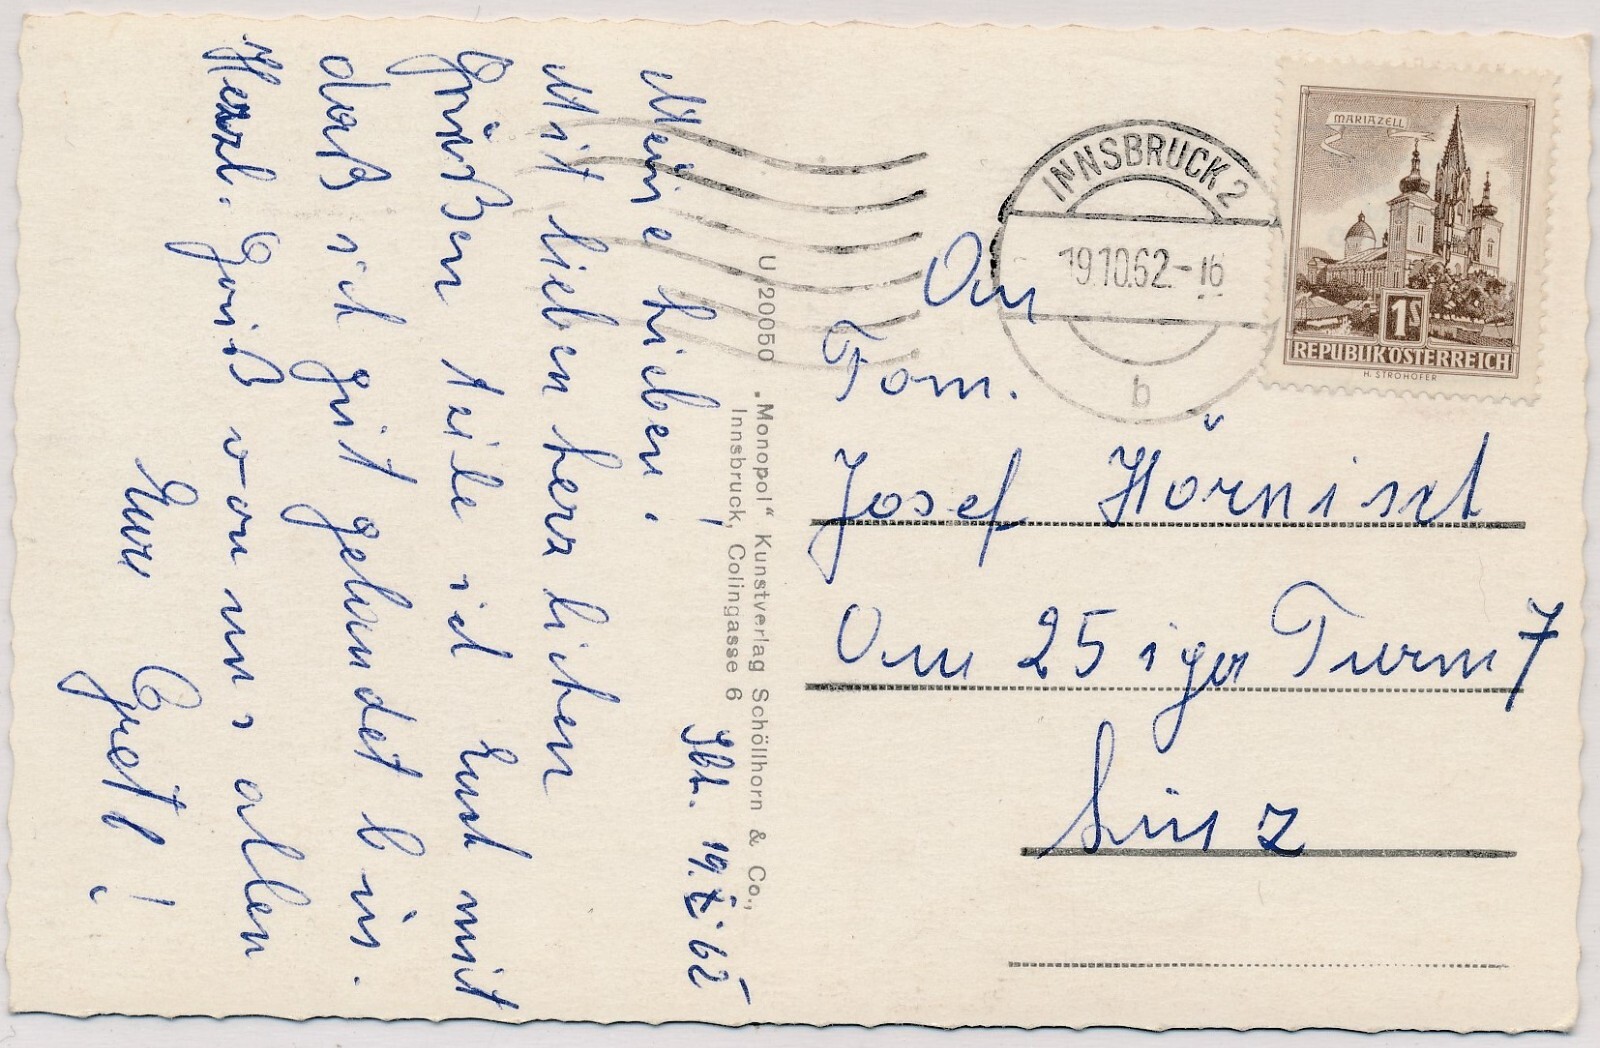 Ibk. 19.X.62
Meine Lieben!
Mit lieben herzlichen
Grüßen teile ich Euch mit
daß ich gut gelandet bin.
Herzl. Gruß von uns allen
Eure Gretl!
U 20050 „Monopol“ Kunstverlag Schöllhorn & Co.,
Innsbruck, Colingasse 6
INNSBRUCK 2
19.10.62.-16
b
MARIAZELL
1S
REPUBLIK ÖSTERREICH
H. STROHOFER
An
Fam.
Josef Hörnisch
Am 25iger Turm 7
Linz